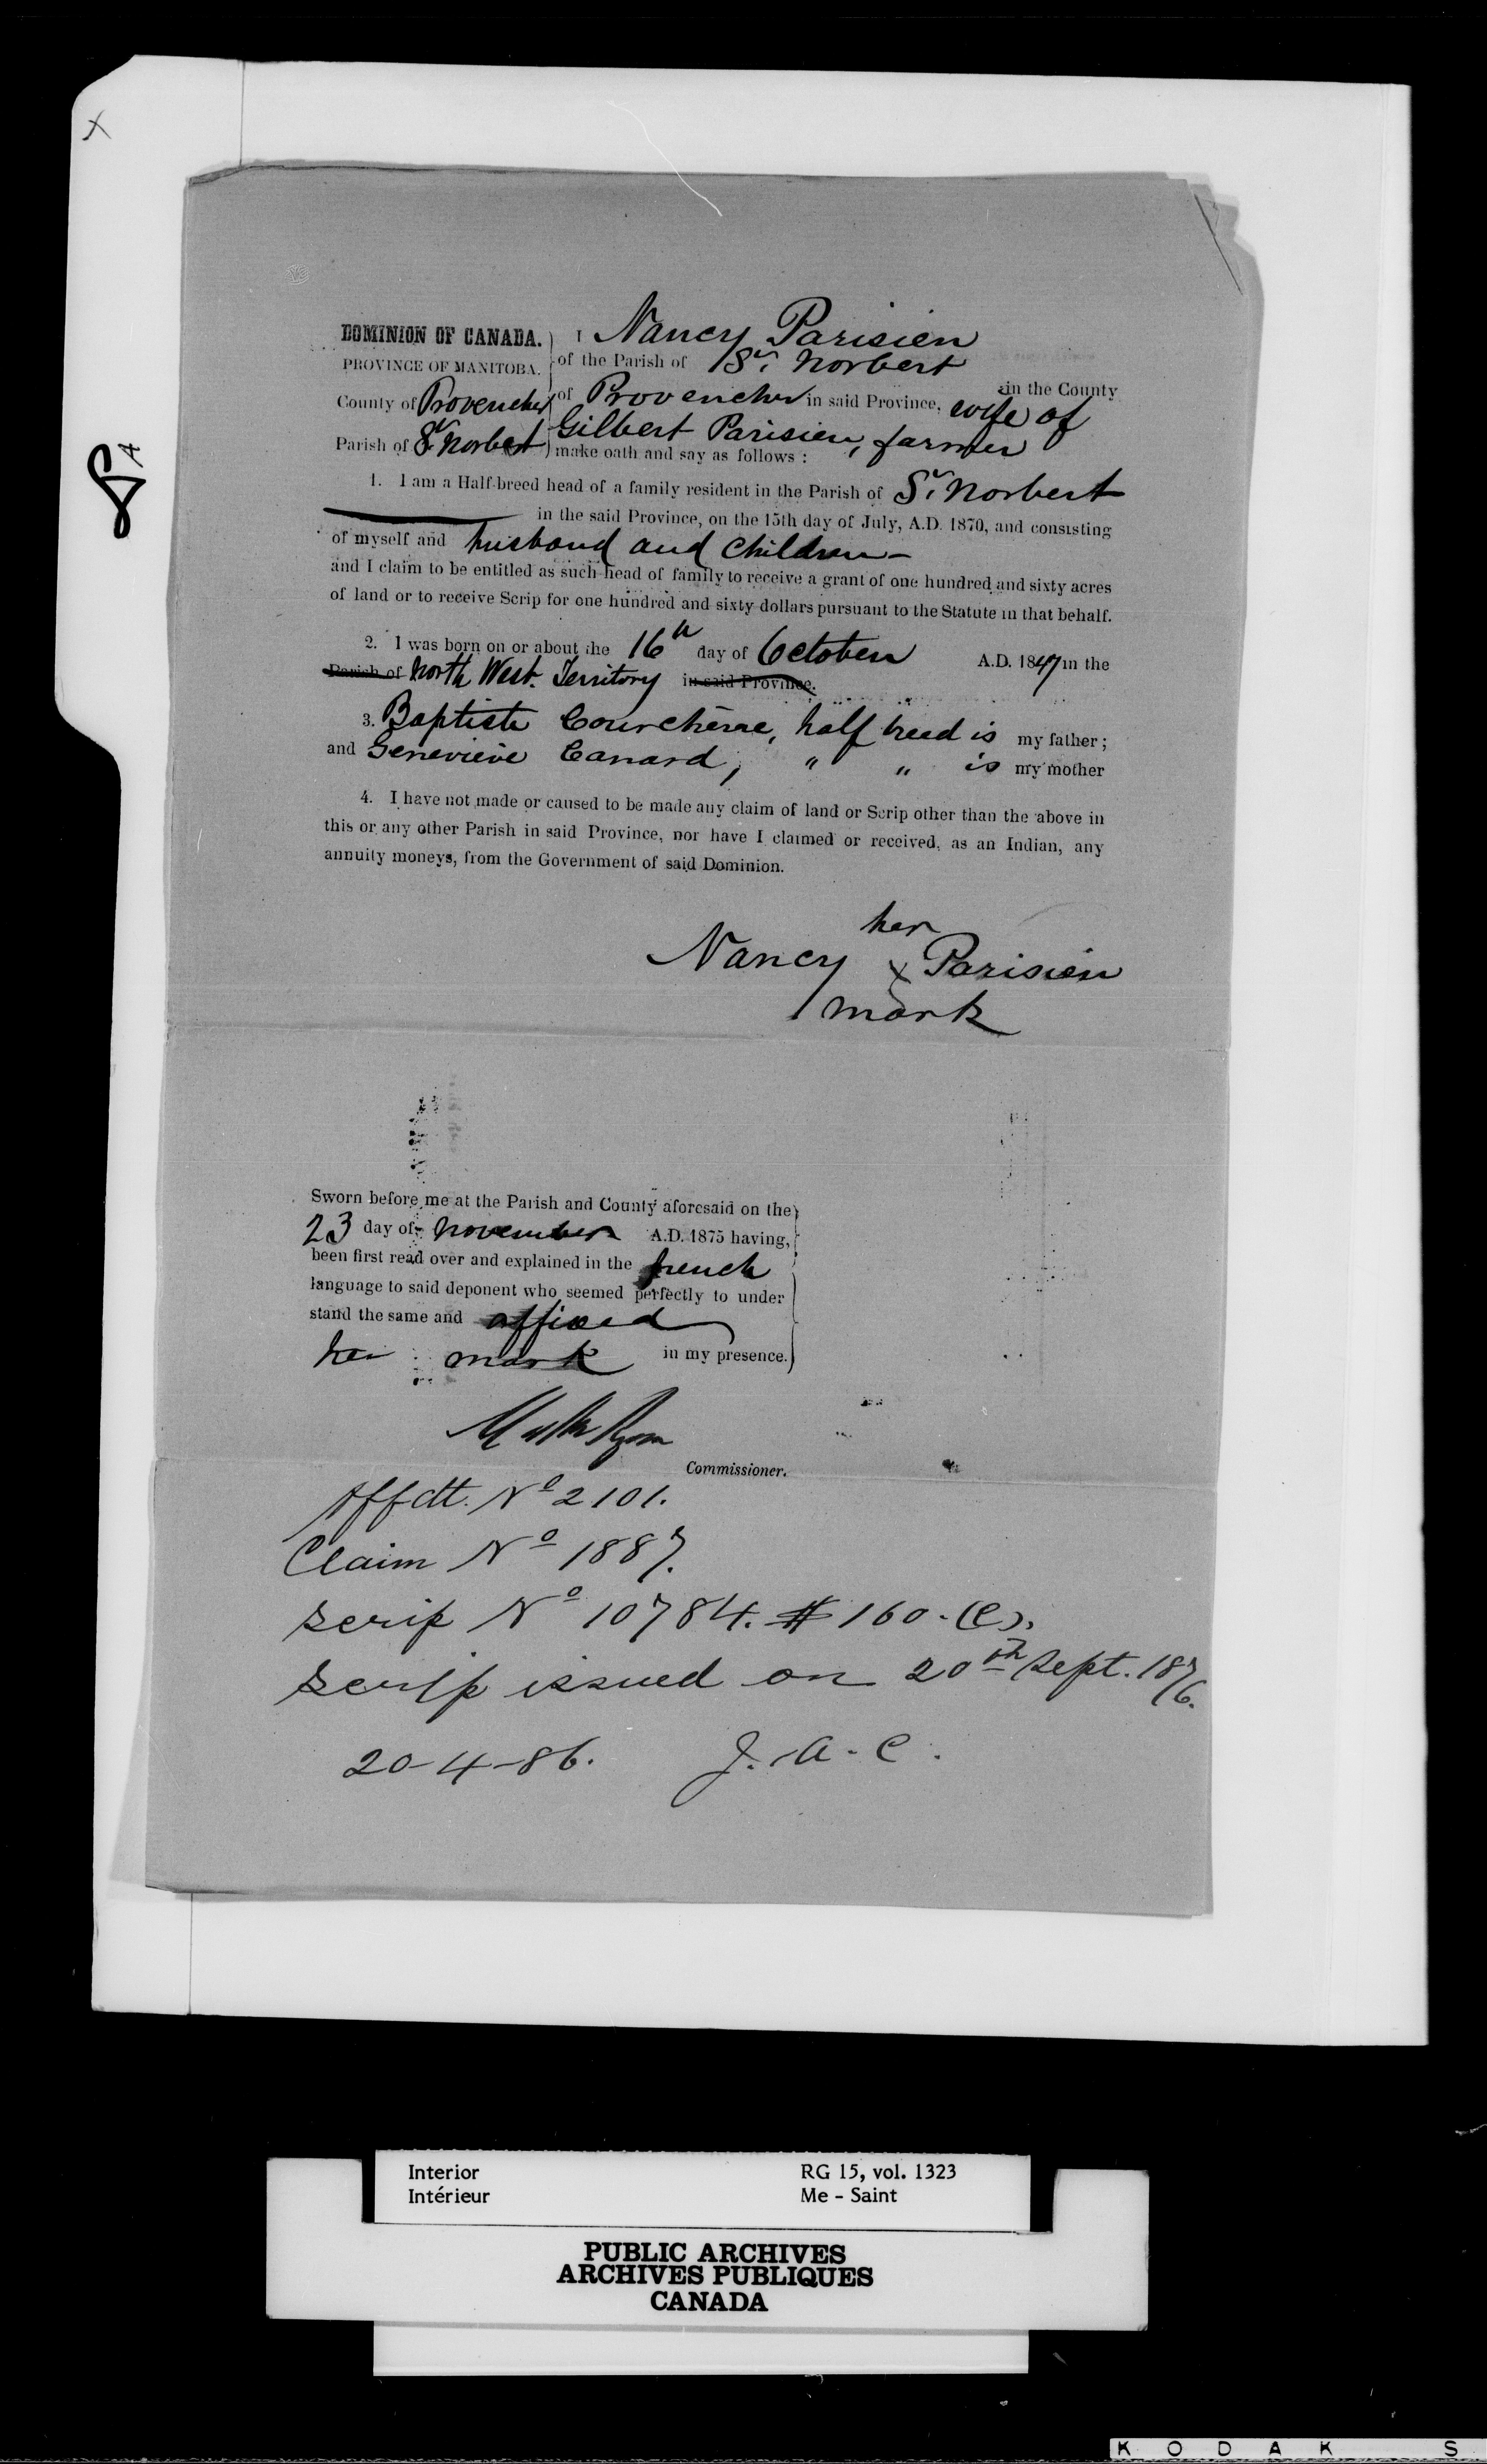 X
8A
DOMINION OF CANADA.
PROVINCE OF MANITOBA.
County of Provencher
Parish of St. Norbert
I Nancy Parisien
of the Parish of St. Norbert
in the County
of Provencher in said Province, wife of
Gilbert Parisien, farmer
make oath and say as follows :
1. I am a Half-breed head of a family resident in the Parish of St. Norbert
in the said Province, on the 15th day of July, A.D. 1870, and consisting
of myself and husband and children
and I claim to be entitled as such head of family to receive a grant of one hundred and sixty acres
of land or to receive Scrip for one hundred and sixty dollars pursuant to the Statute in that behalf.
2. I was born on or about the 16th day of October A.D. 1847 in the
Parish of North West. Territory in said Province.
3. Baptiste Courchêne, half breed is my father ;
and Genevieve Canard, " " is my mother
4. I have not made or caused to be made any claim of land or Scrip other than the above in
this or any other Parish in said Province, nor have I claimed or received, as an Indian, any
annuity moneys, from the Government of said Dominion.
her
Nancy X Parisien
mark
Sworn before me at the Parish and County aforesaid on the
23 day of november A.D. 1875 having,
been first read over and explained in the french
language to said deponent who seemed perfectly to under
stand the same and affixed
her mark in my presence.
Commissioner.
Affdt. No 2101.
Claim No 1887.
Scrip No 10784. $160-(C).
Scrip issued on 20th Sept. 1876.
20-4-86. J. A. C.
Interior
Intérieur
RG 15, vol. 1323
Me - Saint
PUBLIC ARCHIVES
ARCHIVES PUBLIQUES
CANADA
K O D A K S